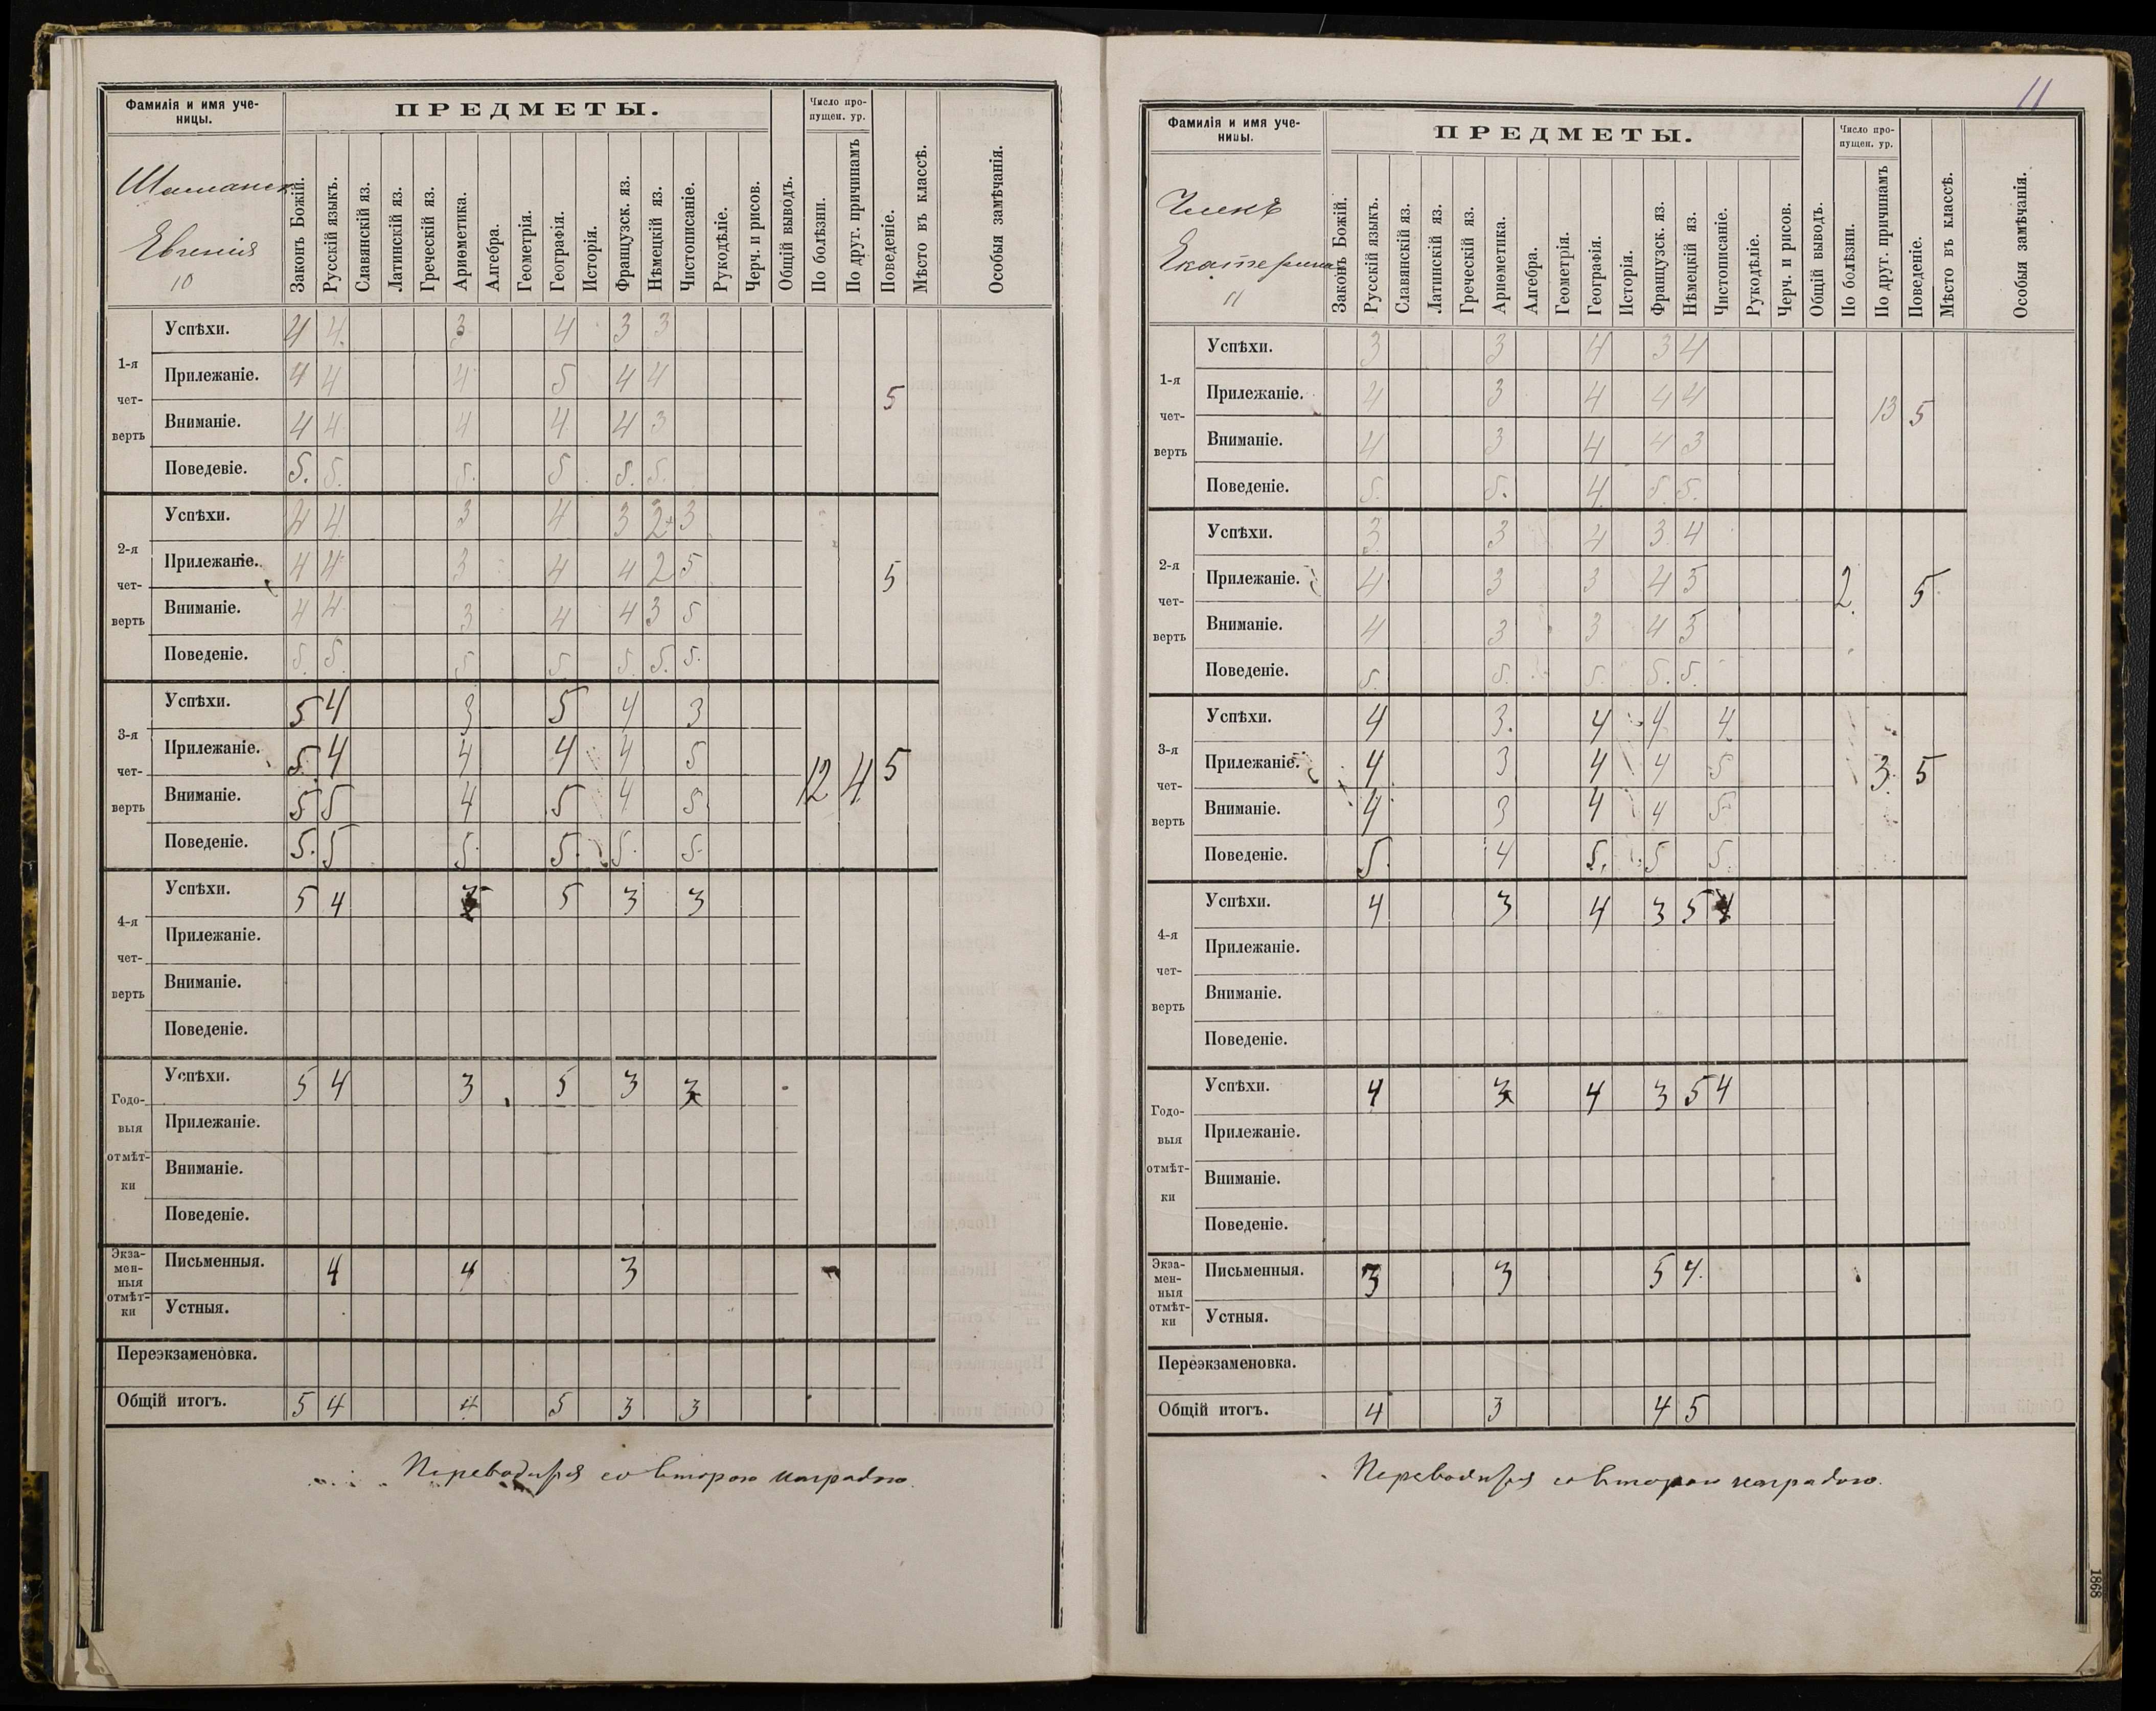 Фамилія и имя уче-
ницы.
ПРЕДМЕТЫ.
Число про-
пущен. ур.
Евгенія
10
Законъ Божій.
Русскій языкъ.
Славянскій яз.
Латинскій яз.
Греческій яз.
Ариѳметика.
Алгебра.
Геометрія.
Географія.
Исторія.
Французск. яз.
Нѣмецкій яз.
Чистописаніе.
Рукодѣліе.
Черч. и рисов.
Общій выводъ.
По болѣзни.
По друг. причинамъ
Поведеніе.
Мѣсто въ классѣ.
Особыя замѣчанія.
1-я чет- верть
Успѣхи. 4 4 3 4 3 3
Прилежаніе. 4 4 4 5 4 4
5
Вниманіе. 4 4 4 4 4 3
Поведевіе. 5. 5. 5. 5 5. 5.
2-я чет- верть
Успѣхи. 4 4 3 4 3 2+ 3
Прилежаніе. 4 4 3 4 4 2 5
5
Вниманіе. 4 4 3 4 4 3 5
Поведеніе. 5. 5. 5. 5. 5. 5. 5.
3-я чет- верть
Успѣхи. 5 4 3 5 4 3
Прилежаніе. 5. 4 4 4 4 5
12 4 5
Вниманіе. 5 5 4 5 4 5
Поведеніе. 5. 5 5. 5. 5. 5.
4-я чет- верть
Успѣхи. 5 4 5 3 3
Прилежаніе.
Вниманіе.
Поведеніе.
Годо- выя отмѣт- ки
Успѣхи. 5 4 3 5 3 3
Прилежаніе.
Вниманіе.
Поведеніе.
Экза- мен- ныя отмѣт- ки
Письменныя. 4 4 3
Устныя.
Переэкзаменовка.
Общій итогъ. 5 4 4 5 3 3
Переводится со второю наградою.
11
Фамилія и имя уче-
ницы.
ПРЕДМЕТЫ.
Число про-
пущен. ур.
Екатерина
11
Законъ Божій.
Русскій языкъ.
Славянскій яз.
Латинскій яз.
Греческій яз.
Ариѳметика.
Алгебра.
Геометрія.
Географія.
Исторія.
Французск. яз.
Нѣмецкій яз.
Чистописаніе.
Рукодѣліе.
Черч. и рисов.
Общій выводъ.
По болѣзни.
По друг. причинамъ
Поведеніе.
Мѣсто въ классѣ.
Особыя замѣчанія.
1-я чет- верть
Успѣхи. 3 3 4 3 4
Прилежаніе. 4 3 4 4 4
13 5
Вниманіе. 4 3 4 4 3
Поведеніе. 5. 5. 4 5. 5.
2-я чет- верть
Успѣхи. 3 3 4 3 4
Прилежаніе. 4 3 3 4 5
2. 5
Вниманіе. 4 3 3 4 5
Поведеніе. 5. 5. 5. 5. 5.
3-я чет- верть
Успѣхи. 4 3. 4 4 4
Прилежаніе. 4 3 4 4 5
3. 5
Вниманіе. 4 3 4 4 5
Поведеніе. 5. 4 5. 5 5.
4-я чет- верть
Успѣхи. 4 3 4 3 5 4
Прилежаніе.
Вниманіе.
Поведеніе.
Годо- выя отмѣт- ки
Успѣхи. 4 3 4 3 5 4
Прилежаніе.
Вниманіе.
Поведеніе.
Экза- мен- ныя отмѣт- ки
Письменныя. 3 3 5 4.
Устныя.
Переэкзаменовка.
Общій итогъ. 4 3 4 5
Переводится со второю наградою.
1868